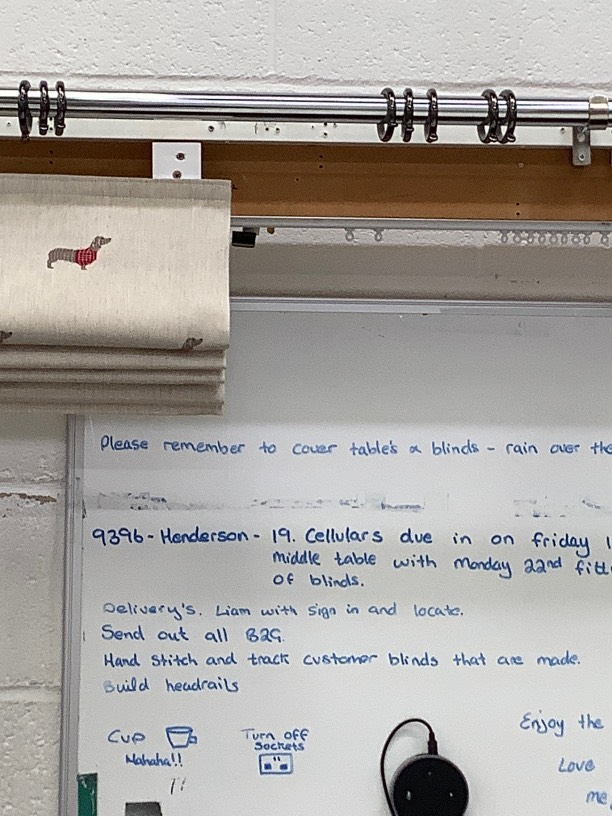 Please remember to cover table's & blinds - rain over the
9396 - Henderson - 19. Cellulars due in on friday 1
middle table with Monday 22nd fitt
of blinds.
Delivery's. Liam with sign in and locate.
Send out all B2G.
Hand stitch and track customer blinds that are made.
Build headrails
Cup
Mahaha!!
Turn off
Sockets
Enjoy the
Love
me